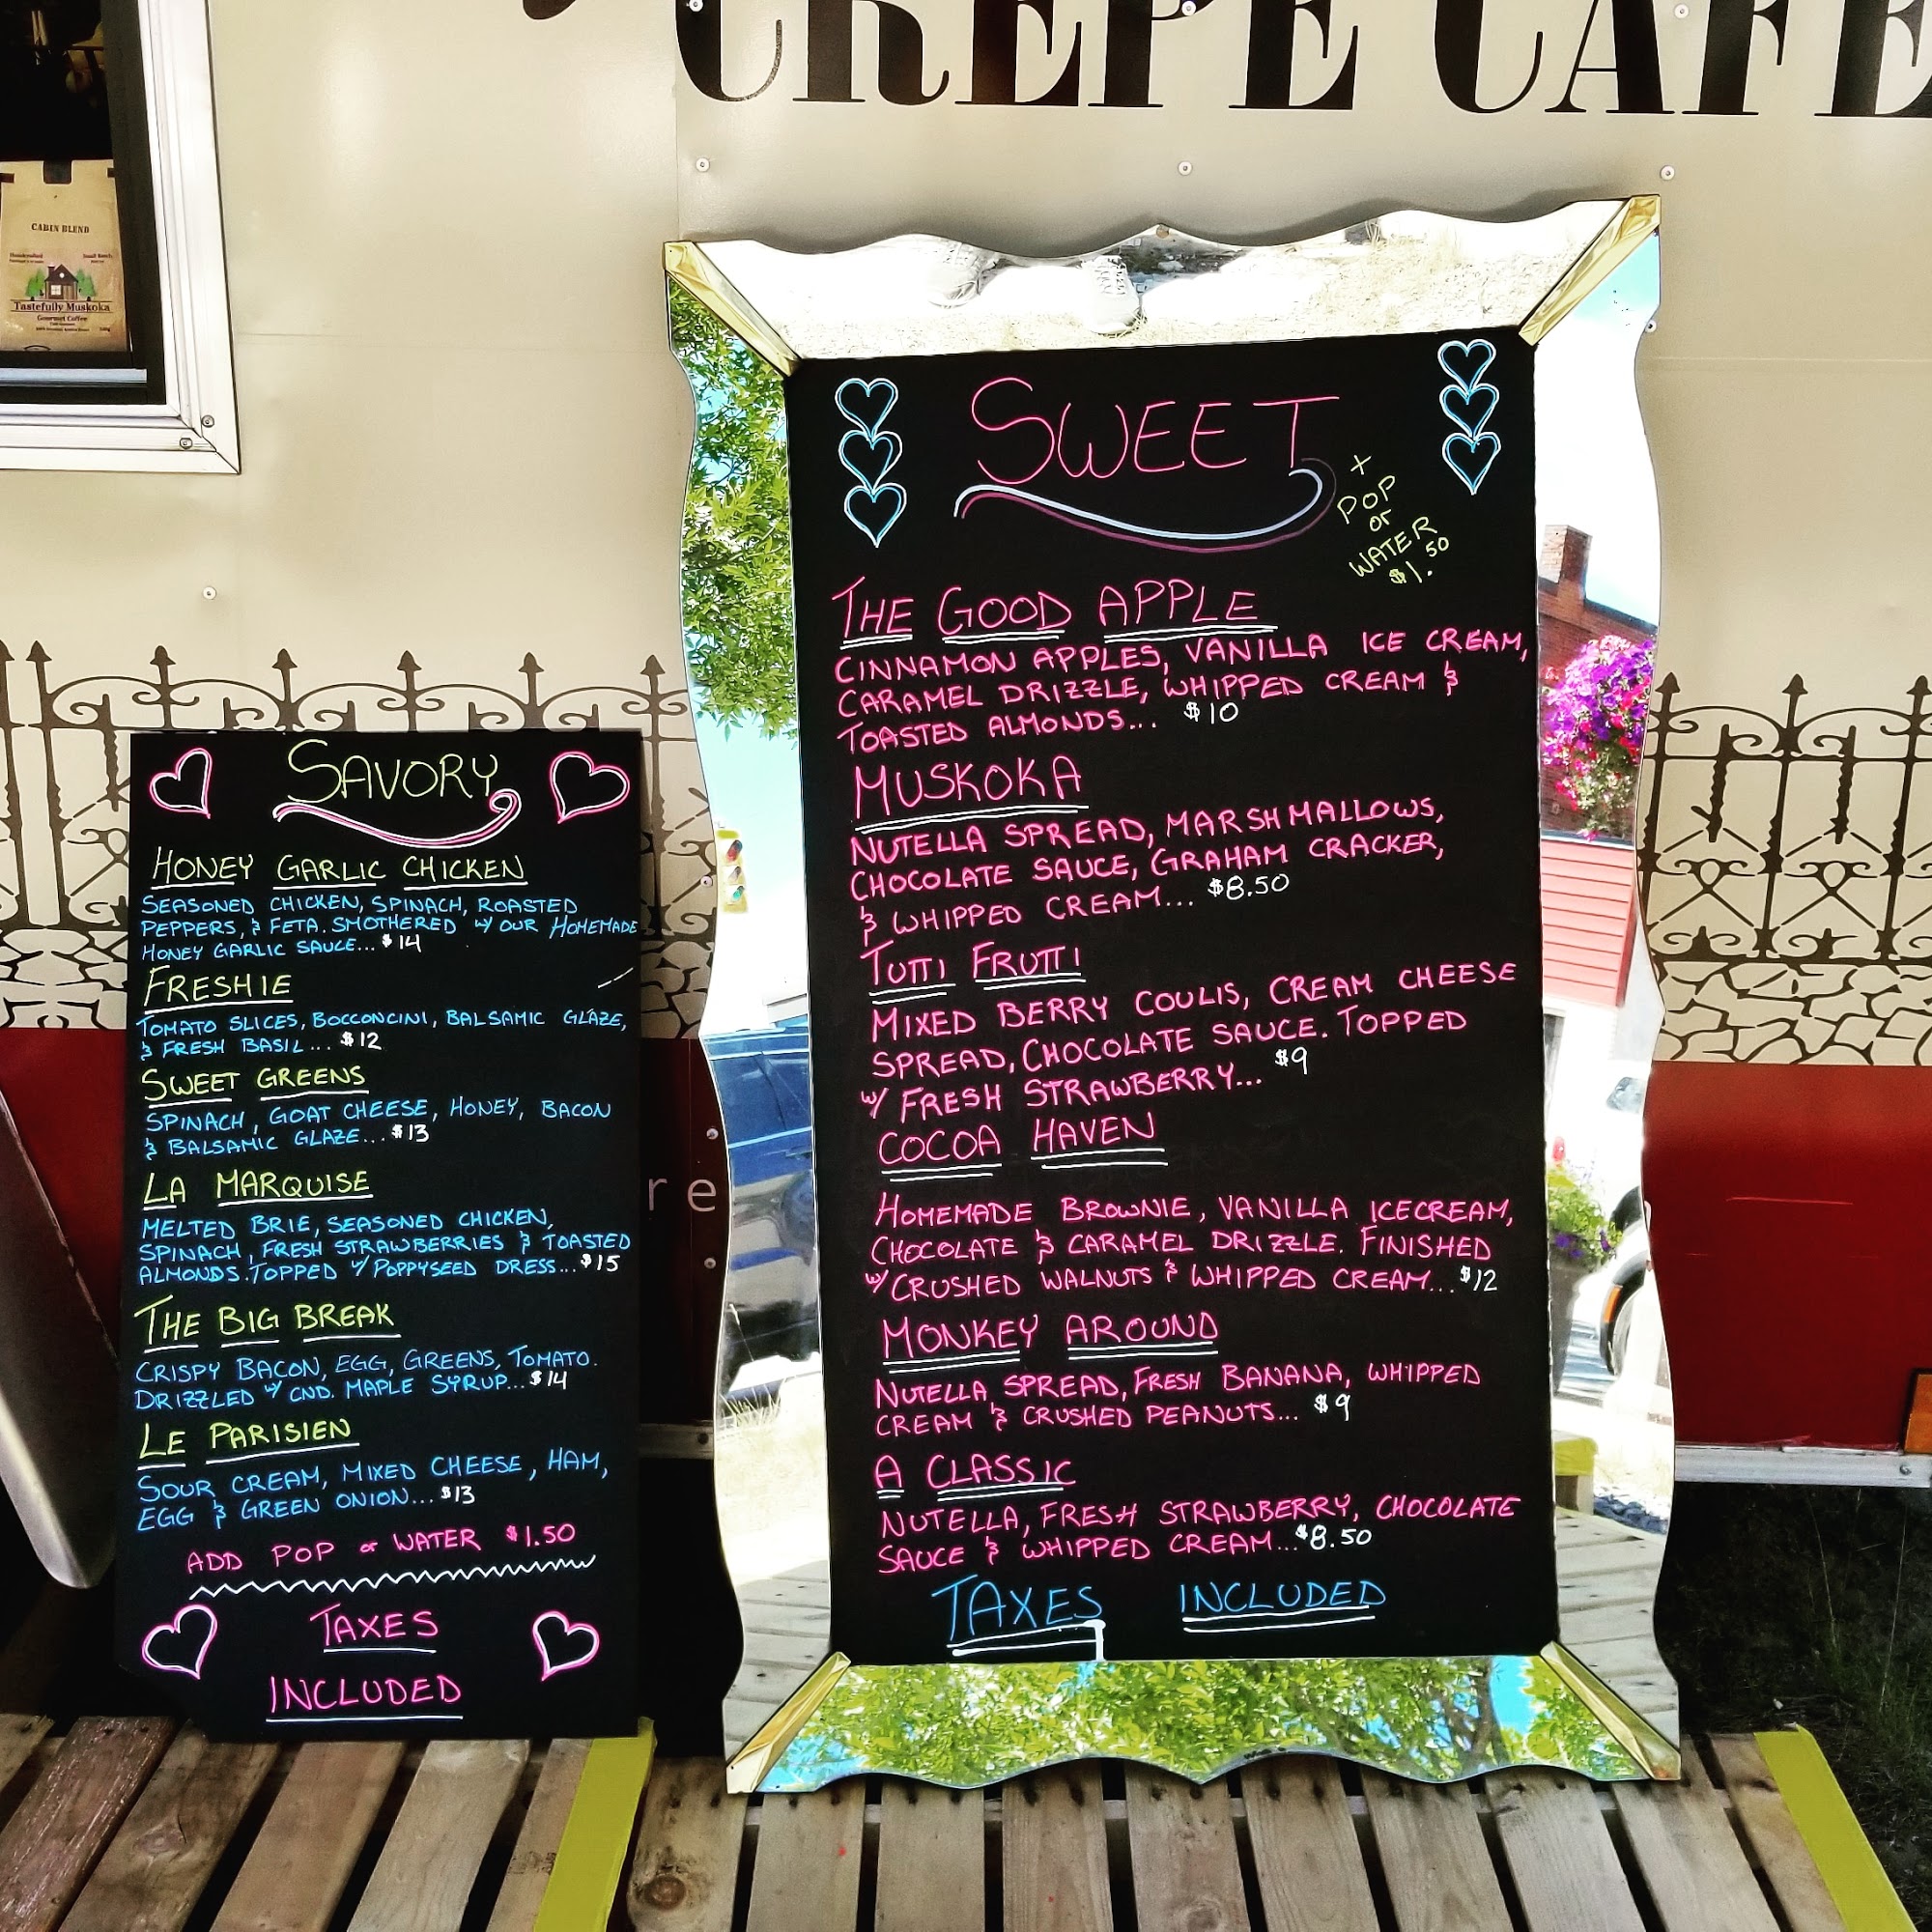 CREPE CAFE
CABIN BLEND
Tastefully Muskoka
Gourmet Coffee
SAVORY
HONEY GARLIC CHICKEN
SEASONED CHICKEN, SPINACH, ROASTED
PEPPERS, & FETA. SMOTHERED W/ OUR HOMEMADE
HONEY GARLIC SAUCE... $14
FRESHIE
TOMATO SLICES, BOCCONCINI, BALSAMIC GLAZE,
& FRESH BASIL... $12
SWEET GREENS
SPINACH, GOAT CHEESE, HONEY, BACON
& BALSAMIC GLAZE... $13
LA MARQUISE
MELTED BRIE, SEASONED CHICKEN,
SPINACH, FRESH STRAWBERRIES & TOASTED
ALMONDS. TOPPED W/ POPPYSEED DRESS... $15
THE BIG BREAK
CRISPY BACON, EGG, GREENS, TOMATO.
DRIZZLED W/ CND. MAPLE SYRUP... $14
LE PARISIEN
SOUR CREAM, MIXED CHEESE, HAM,
EGG & GREEN ONION... $13
ADD POP or WATER $1.50
TAXES
INCLUDED
re
SWEET
+
POP
or
WATER
$1.50
THE GOOD APPLE
CINNAMON APPLES, VANILLA ICE CREAM,
CARAMEL DRIZZLE, WHIPPED CREAM &
TOASTED ALMONDS... $10
MUSKOKA
NUTELLA SPREAD, MARSHMALLOWS,
CHOCOLATE SAUCE, GRAHAM CRACKER,
& WHIPPED CREAM... $8.50
TUTTI FRUTTI
MIXED BERRY COULIS, CREAM CHEESE
SPREAD, CHOCOLATE SAUCE. TOPPED
W/ FRESH STRAWBERRY... $9
COCOA HAVEN
HOMEMADE BROWNIE, VANILLA ICECREAM,
CHOCOLATE & CARAMEL DRIZZLE. FINISHED
W/ CRUSHED WALNUTS & WHIPPED CREAM... $12
MONKEY AROUND
NUTELLA SPREAD, FRESH BANANA, WHIPPED
CREAM & CRUSHED PEANUTS... $9
A CLASSIC
NUTELLA, FRESH STRAWBERRY, CHOCOLATE
SAUCE & WHIPPED CREAM... $8.50
TAXES INCLUDED